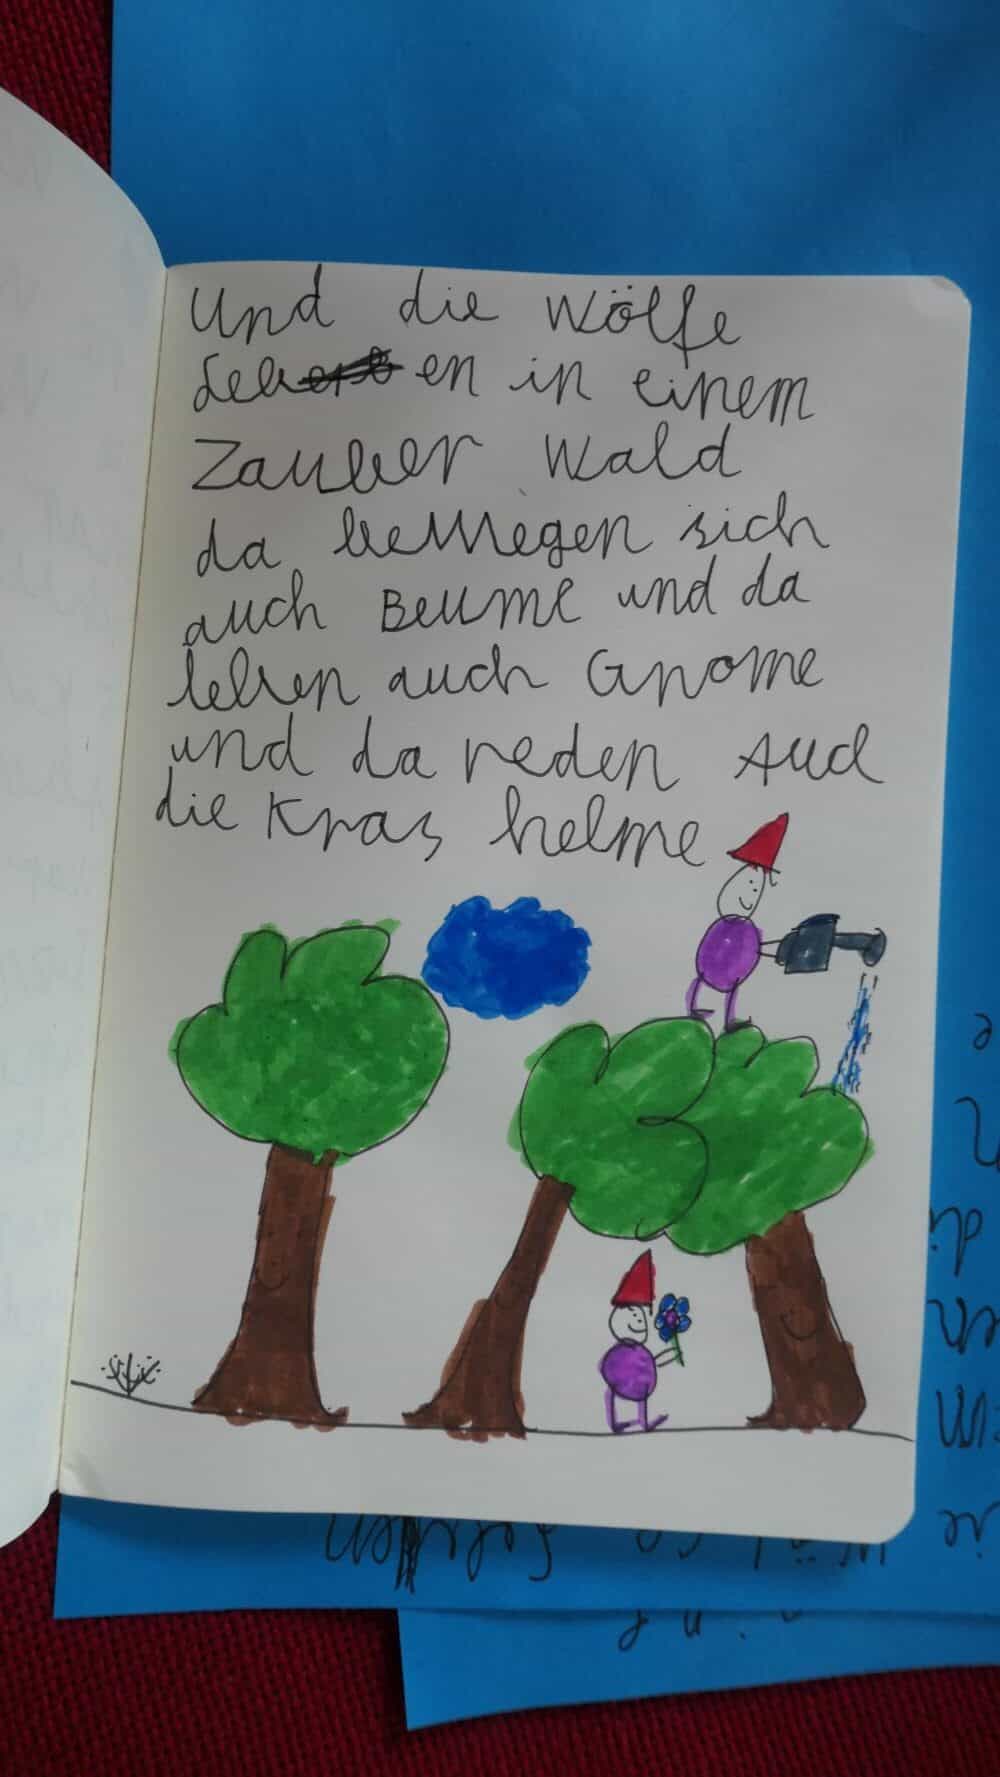 Und die Wölfe
leben in einem
Zauber Wald
da bewegen sich
auch Beume und da
leben auch Gnome
und da reden Auch
die Kras helme